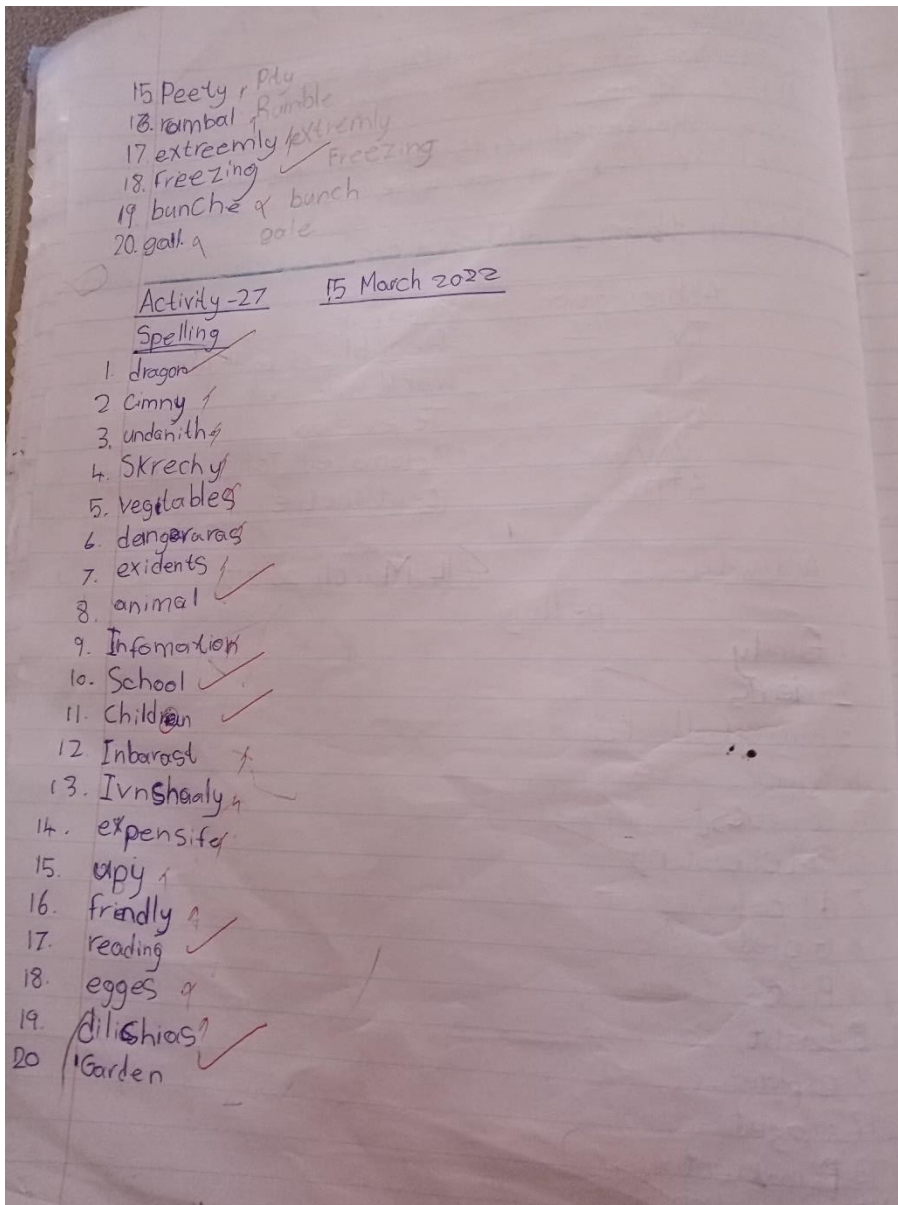 15 Peety, Pity
16. rambal Ramble
17 extreemly extremly
18. Freezing Freezing
19 bunche bunch
20. gall gale
Activity-27 15 March 2022
Spelling
1. dragon
2 Cimny
3. undanith
4. Skrechy
5. vegetables
6. dangeraras
7. exidents
8. animal
9. Infomation
10. School
11. Children
12 Inbarast
13. Ivnshaaly
14. expensife
15. upy
16. frindly
17. reading
18. egges
19. dilishias
20 Garden